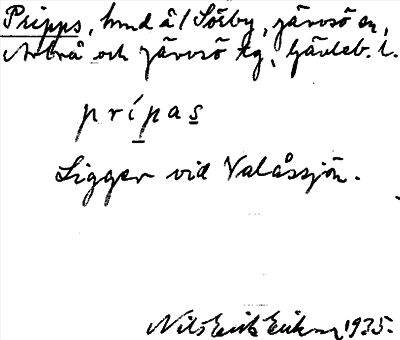 Pripps, hmd å / Sörby, Järvsö sn,
Arbrå och Järvsö tg, Gävleb. l.
prípas
Ligger vid Valåssjön.
Nils Erik Erikson 1935.